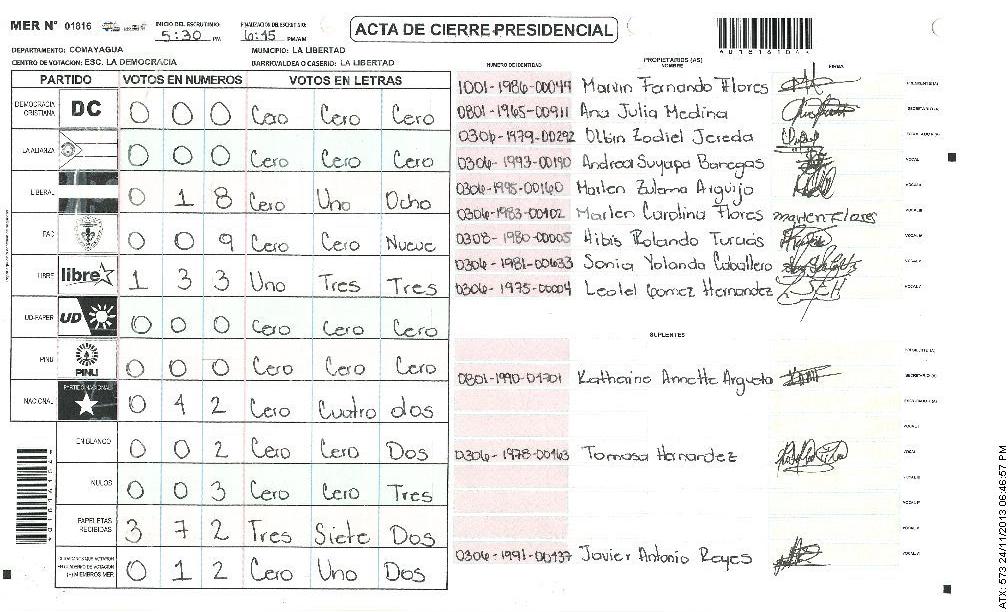 MER N° 01816
INICIO DEL ESCRUTINIO
5:30 PM
FINALIZACION DEL ESCRUTINIO
6:45 PM/AM
ACTA DE CIERRE PRESIDENCIAL
DEPARTAMENTO: COMAYAGUA
MUNICIPIO: LA LIBERTAD
CENTRO DE VOTACION: ESC. LA DEMOCRACIA
BARRIO/ALDEA O CASERIO: LA LIBERTAD
PARTIDO VOTOS EN NUMEROS VOTOS EN LETRAS
DEMOCRACIA CRISTIANA DC 0 0 0 Cero Cero Cero
LA ALIANZA 0 0 0 Cero Cero Cero
LIBERAL 0 1 8 Cero Uno Ocho
PAC 0 0 9 Cero Cero Nueve
LIBRE libre 1 3 3 Uno Tres Tres
UD-FAPER UD 0 0 0 Cero Cero Cero
PINU PINU 0 0 0 Cero Cero Cero
NACIONAL PARTIDO NACIONAL 0 4 2 Cero Cuatro dos
EN BLANCO 0 0 2 Cero Cero Dos
NULOS 0 0 3 Cero Cero Tres
PAPELETAS RECIBIDAS 3 7 2 Tres Siete Dos
(+) MIEMBROS MER 0 1 2 Cero Uno Dos
PROPIETARIOS (AS)
NUMERO DE IDENTIDAD NOMBRE FIRMA
1001-1986-00049 Marvin Fernando Flores PRESIDENTE(A)
0801-1965-00911 Ana Julia Medina SECRETARIO(A)
0306-1979-00292 Olbin Zodiel Jereda ESCRUTADOR(A)
0306-1993-00190 Andrea Suyapa Banegas VOCAL I
0306-1995-00160 Marlen Zulema Arguijo VOCAL II
0306-1983-00102 Marlen Carolina Flores marlen Flores VOCAL III
0308-1980-00005 Hibis Rolando Turcios VOCAL IV
0306-1981-00633 Sonia Yolanda Caballero VOCAL V
0306-1975-00004 Leotel Gomez Hernandez
SUPLENTES
PRESIDENTE (A)
0801-1990-01701 Katherine Annette Argueta SECRETARIO (A)
ESCRUTADOR (A)
VOCAL I
0306-1978-00163 Tomasa Hernandez
VOCAL III
VOCAL IV
0306-1991-00137 Javier Antonio Reyes
ATX: 573 24/11/2013 06:46:57 PM